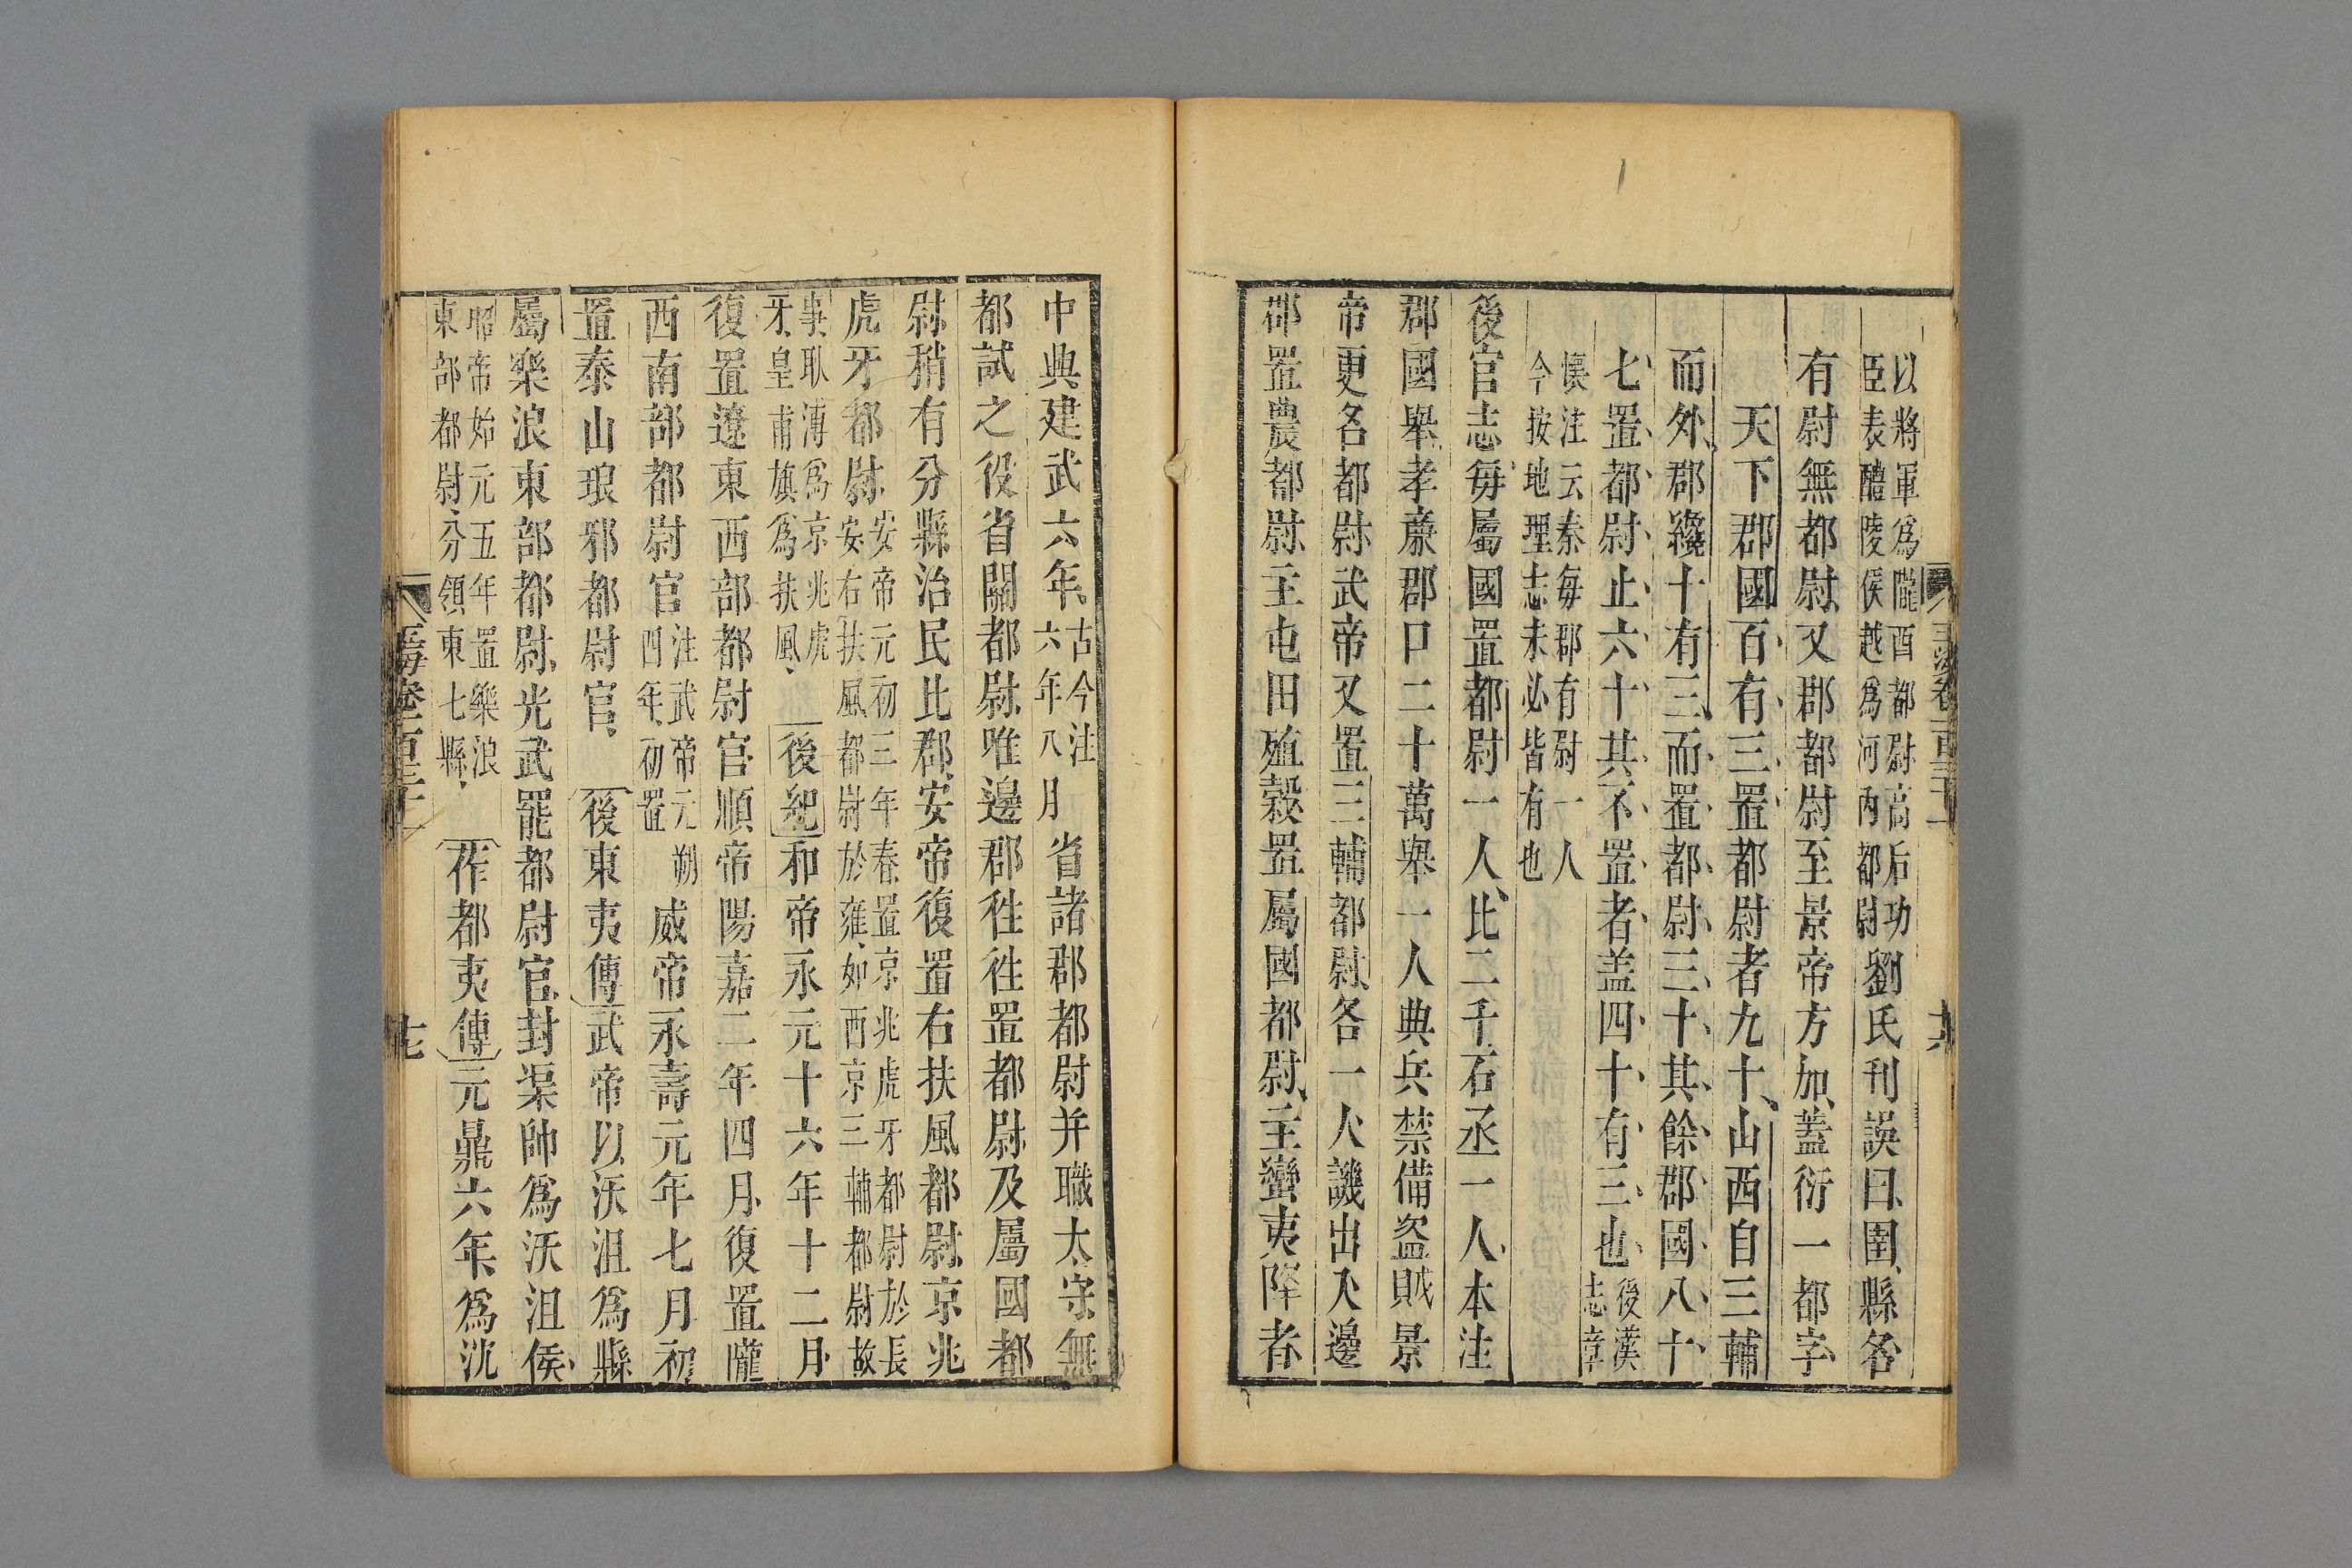 以將軍爲隴酉都尉高后功
臣表醴陵侯越爲河內都尉
劉氏刊誤曰圉縣各
有尉無都尉又郡都尉至景帝方加蓋衍一都字
天下郡國百有三置都尉者九十山西自三輔
而外郡纔十有三而置都尉三十其餘郡國八十
七置都尉止六十其不置者盖四十有三也
後漢志章
懷注云秦每郡有尉一人
今按地理志未必皆有也
後官志每屬國置都尉一人比二千石丞一人本注
郡國舉孝廉郡口二十萬舉一人典兵禁備盜賊景
帝更名都尉武帝又置三輔都尉各一人譏出入邊
郡置農都尉主屯田殖穀置屬國都尉主蠻夷降者
玉海卷一百三十一
十六
中興建武六年
古今注
六年八月
省諸郡都尉并職太守無
都試之役省關都尉唯邊郡徃徃置都尉及屬國都
尉稍有分縣治民比郡安帝復置右扶風都尉京兆
虎牙都尉
安帝元初三年春置京兆虎牙都尉於長
安右扶風都尉於雍如西京三輔都尉故
事耿溥爲京兆虎
牙皇甫旗爲扶風
後紀和帝永元十六年十二月
復置遼東西部都尉官順帝陽嘉二年四月復置隴
西南部都尉官
注武帝元朔
四年初置
威帝永壽元年七月初
置泰山琅邪都尉官
後東夷傳武帝以沃沮爲縣
屬樂浪東部都尉光武罷都尉官封渠帥爲沃沮侯
昭帝始元五年置樂浪
東部都尉分領東七縣
莋都夷傳元鼎六年爲沈
玉海卷一百三十一
十七